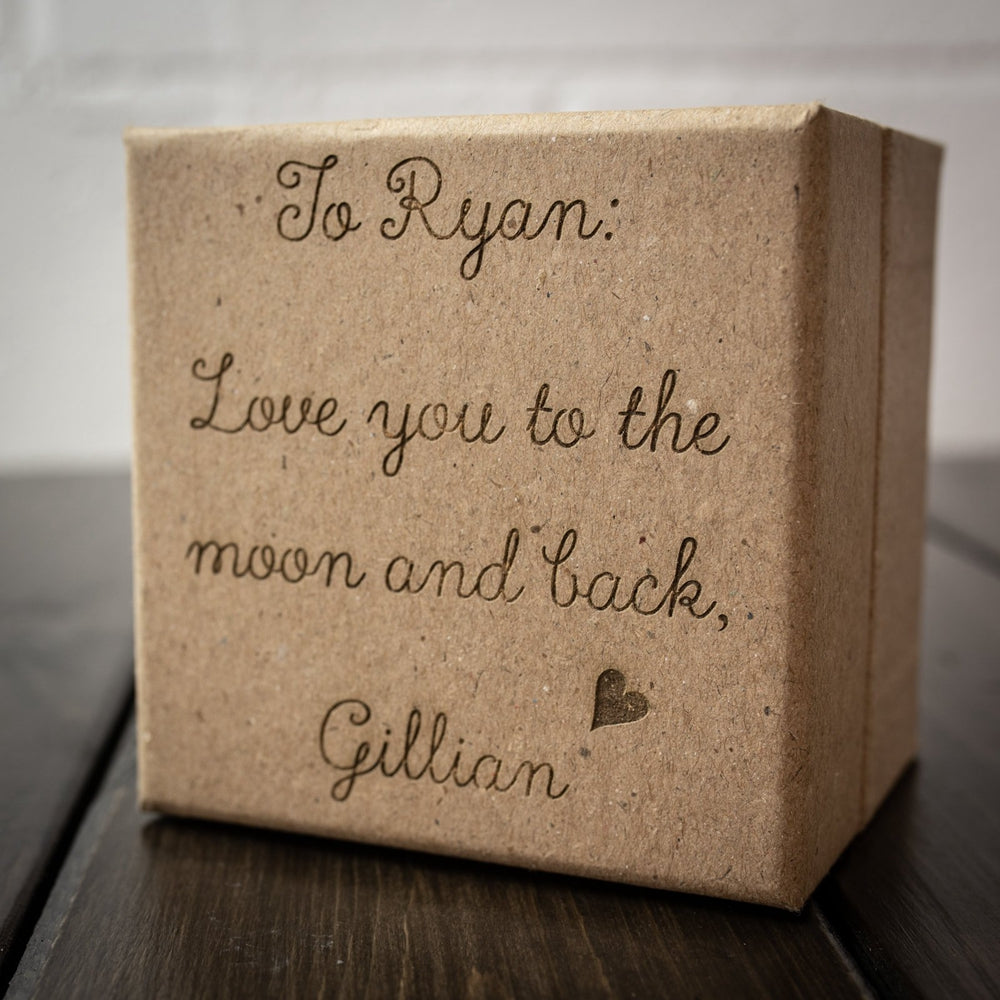 To Ryan:
Love you to the
moon and back,
Gillian